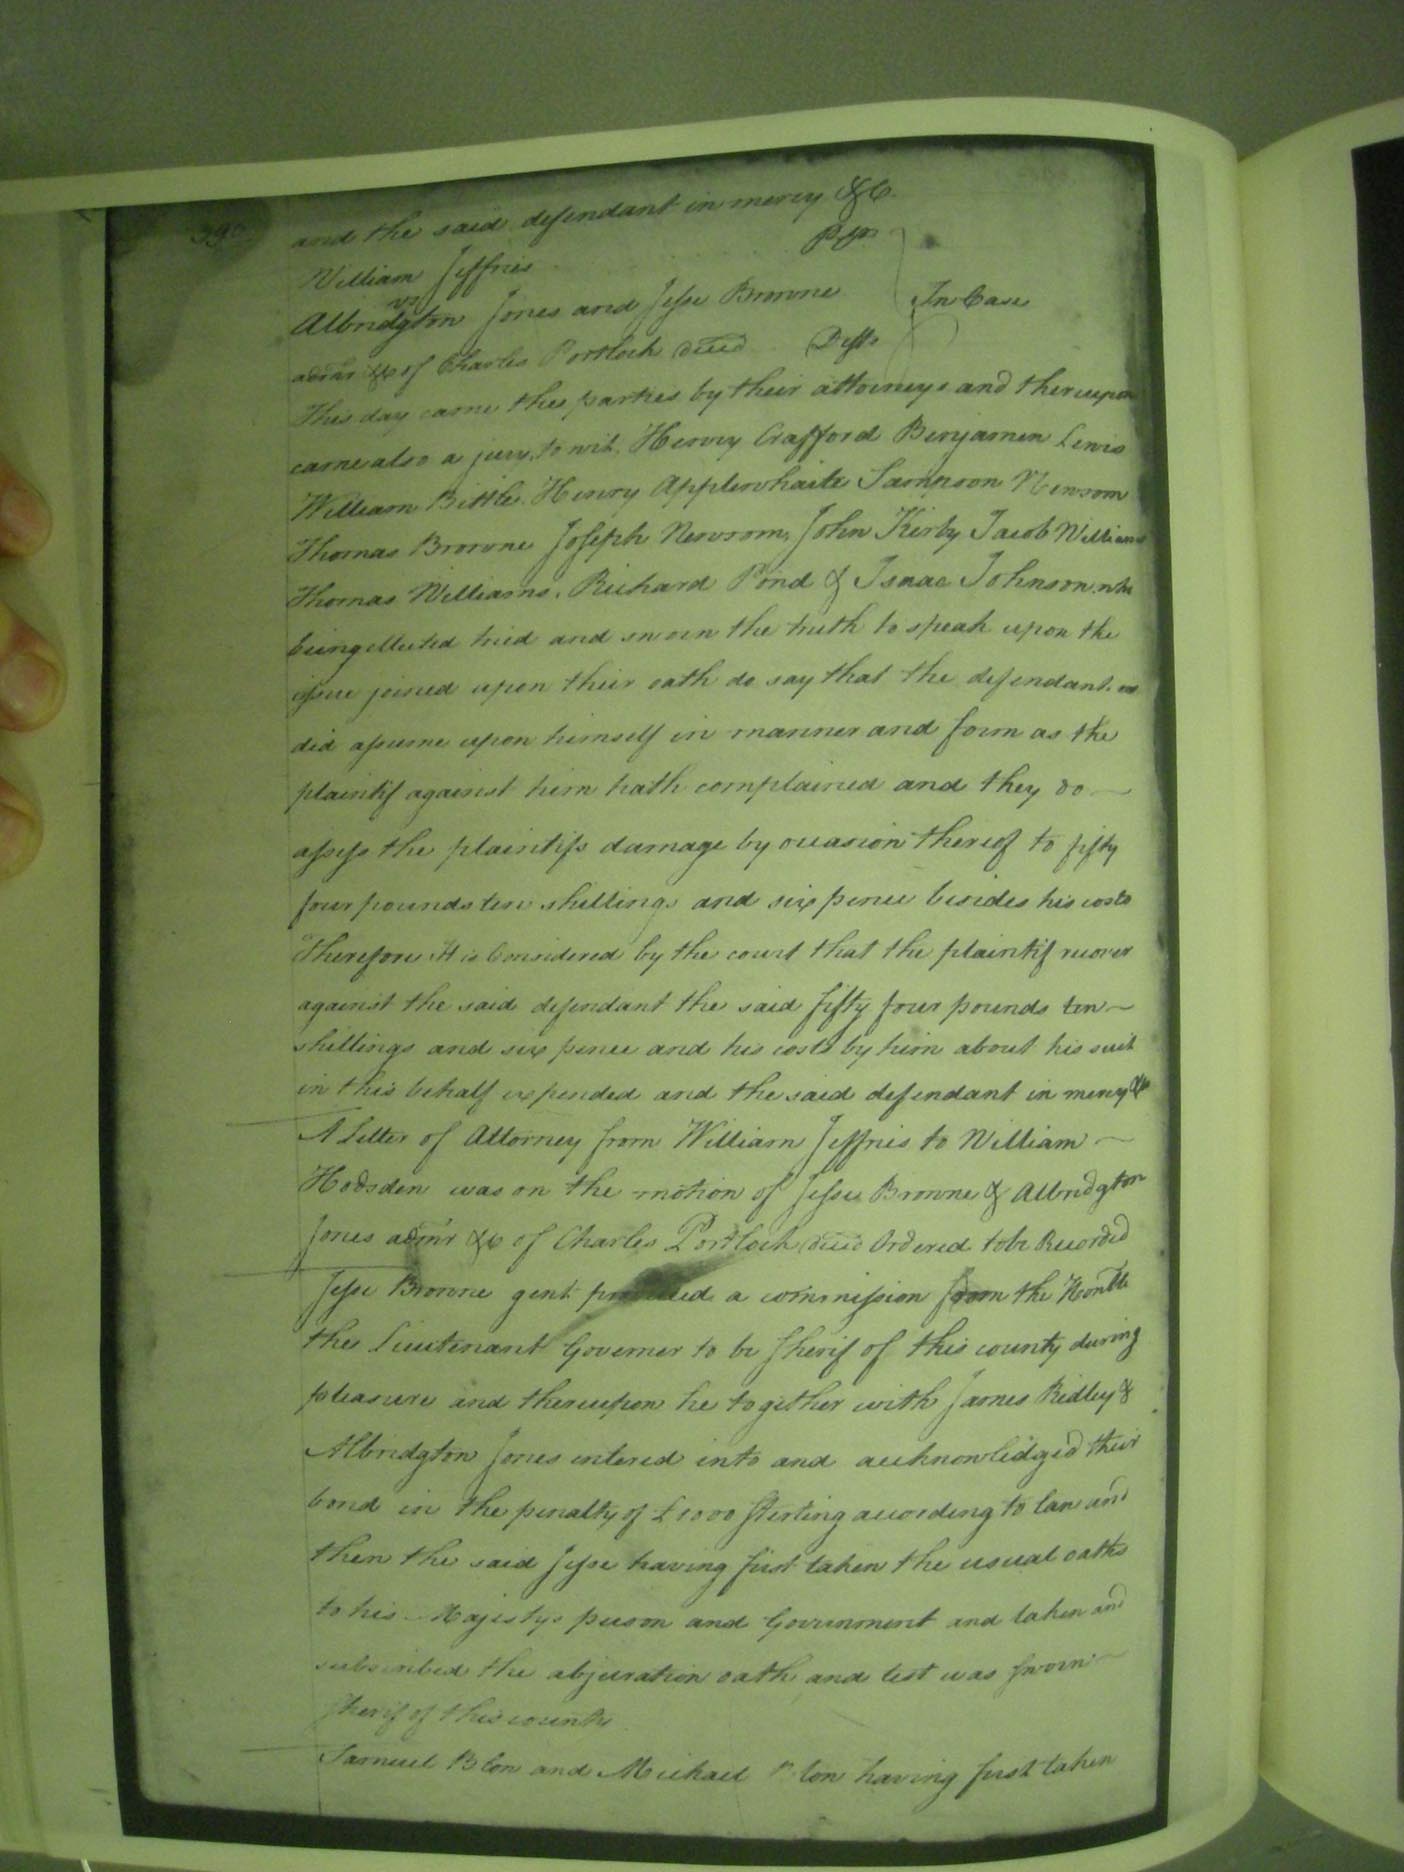 390
and the said defendant in mercy &C.
William Jeffries Pltf
vs
Albridgton Jones and Jesse Browne In Case
admrs &c of Charles Portlock decd Defts
This day came the parties by their attorneys and thereupon
came also a jury, to wit, Henry Crafford Benjamen Lewis
William Bittle Henry Applewhaite Sampson Newsom
Thomas Browne Joseph Newsom, John Kirby Jacob Williams
Thomas Williams, Richard Pond & Isaac Johnson who
being ellected tried and sworn the truth to speak upon the
issue joined upon their oath do say that the defendant
did assume upon himself in manner and form as the
plaintif against him hath complained and they do
assess the plaintifs damage by occasion thereof to fifty
four pounds ten shillings and six pence besides his costs
Therefore It is Considered by the court that the plaintif recover
against the said defendant the said fifty four pounds ten
shillings and six pence and his costs by him about his suit
in this behalf expended and the said defendant in mercy &c
A Letter of Attorney from William Jeffries to William
Hodsden was on the motion of Jesse Browne & Albridgton
Jones admr &c of Charles Portlock decd Ordered to be Recorded
Jesse Browne gent produced a commission from the Honble
the Lieutenant Governer to be Sherif of this county during
pleasure and thereupon he together with James Ridley &
Albridgton Jones entered into and acknowledged their
bond in the penalty of £1000 Sterling according to law and
then the said Jesse having first taken the usual oaths
to his Majestys person and Government and taken and
subscribed the abjuration oath and test was sworn
Sherif of this county
Samuel and Michael having first taken